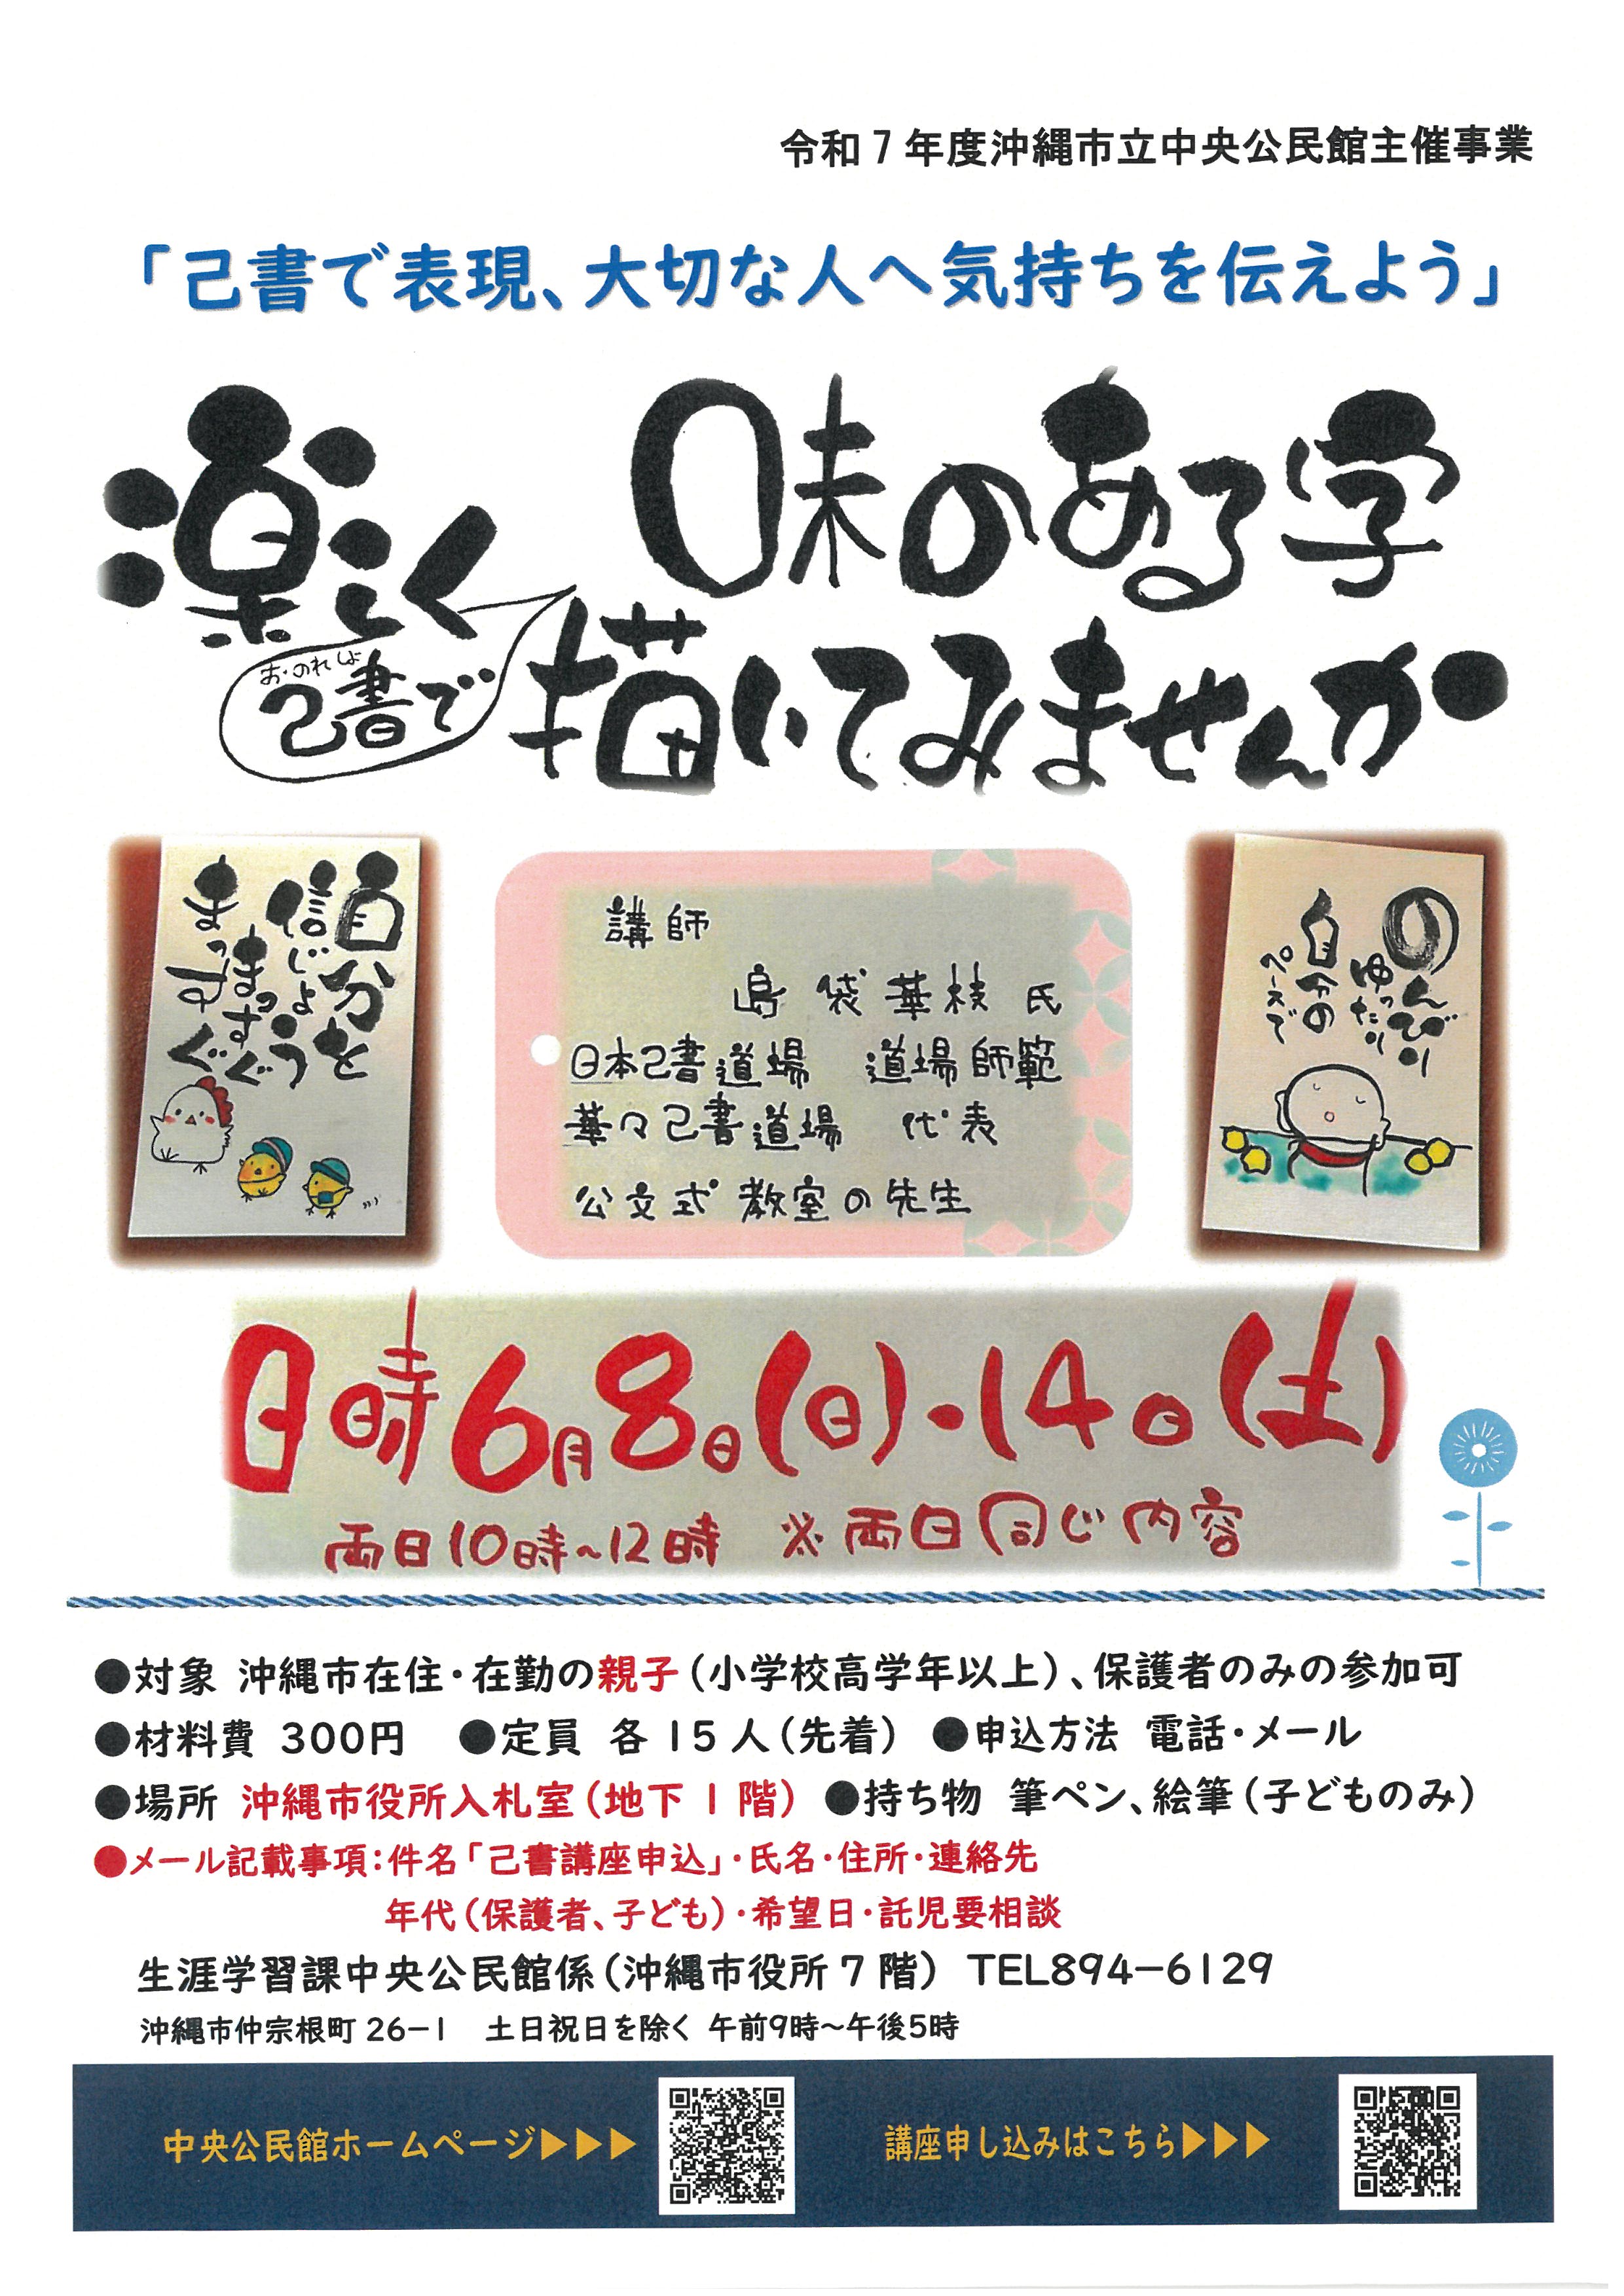 令和7年度沖縄市立中央公民館主催事業
「己書で表現、大切な人へ気持ちを伝えよう」
楽しく 味のある字
おのれしょ
己書で
描いてみませんか
自分を
信じよう
まっすぐ
まっすぐ
講師
島袋華枝氏
日本己書道場 道場師範
華々己書道場 代表
公文式教室の先生
のんびり
ゆったり
自分の
ペースで
日時6月8日(日)・14日(土)
両日10時~12時 ※両日同じ内容
●対象 沖縄市在住・在勤の親子(小学校高学年以上)、保護者のみの参加可
●材料費 300円 ●定員 各15人(先着) ●申込方法 電話・メール
●場所 沖縄市役所入札室(地下1階) ●持ち物 筆ペン、絵筆(子どものみ)
●メール記載事項:件名「己書講座申込」・氏名・住所・連絡先
年代(保護者、子ども)・希望日・託児要相談
生涯学習課中央公民館係(沖縄市役所7階) TEL894-6129
沖縄市仲宗根町26-1 土日祝日を除く 午前9時~午後5時
中央公民館ホームページ▶▶▶ 講座申し込みはこちら▶▶▶